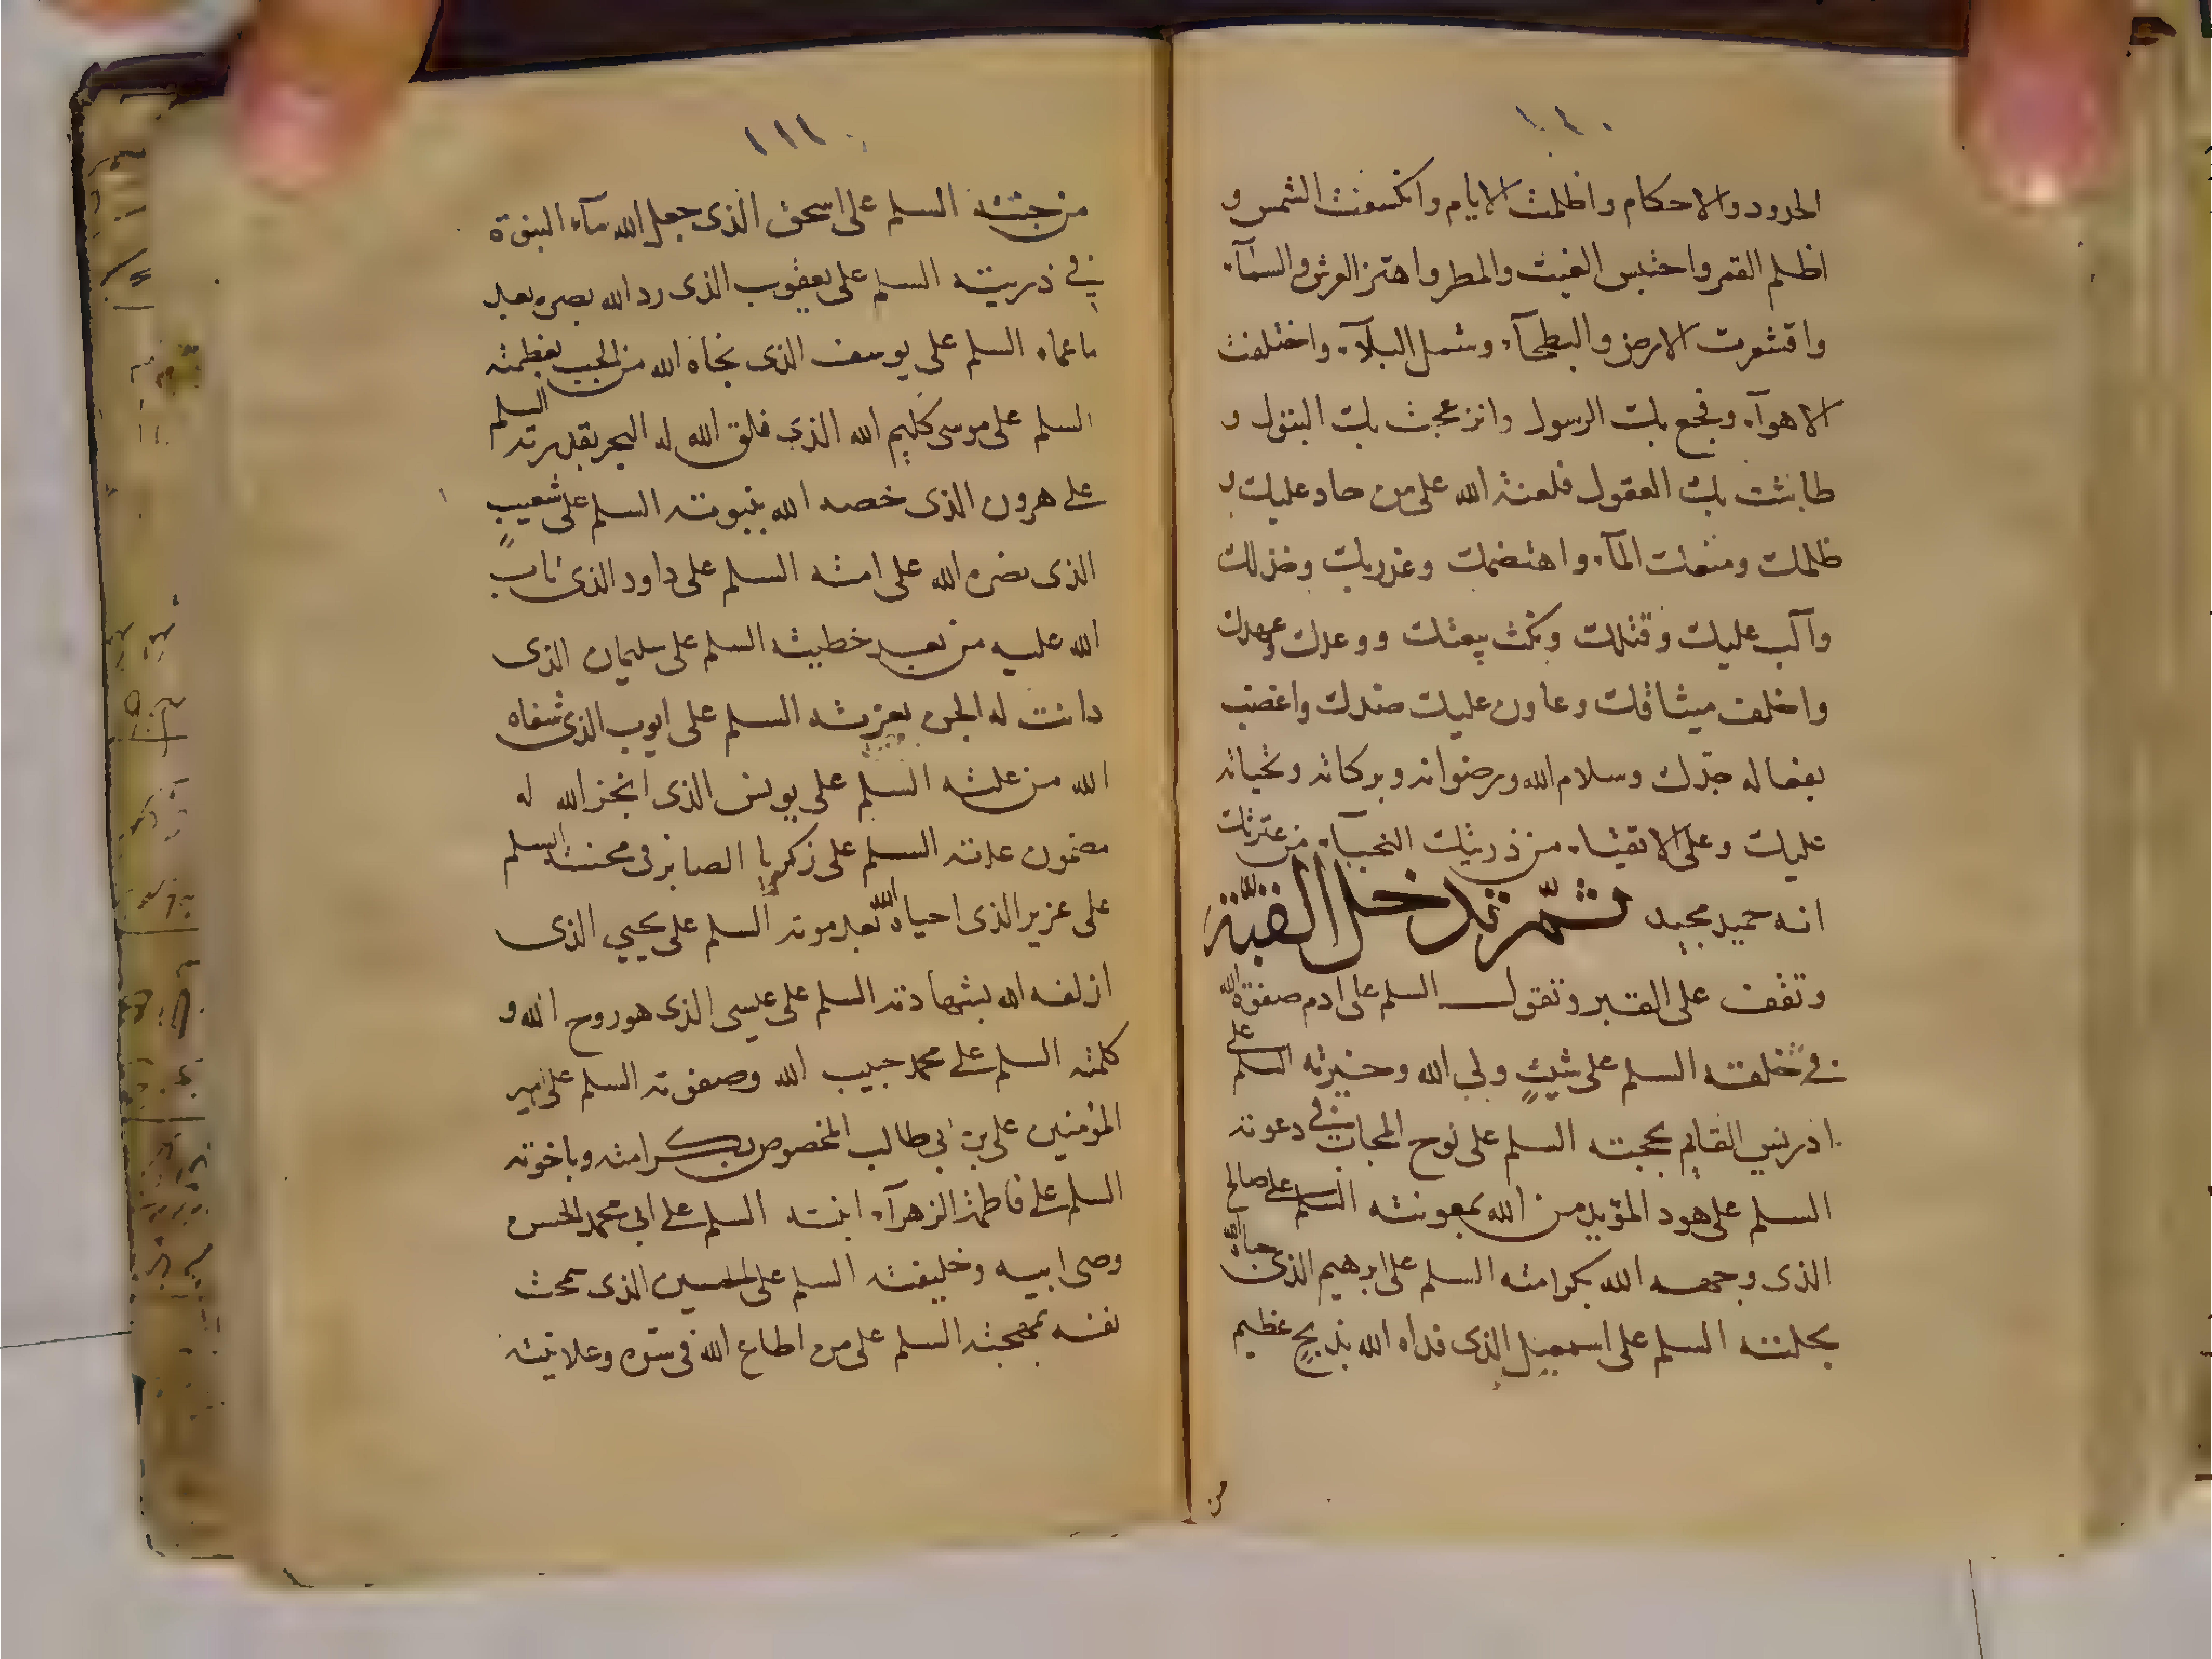 ١١٠
الحدود والاحكام واظلمت الايام وانكسفت الشمس و
اظلم القمر واحتبس الغيث والمطر واهتز العرش والسمآء
واقشعرت الارض والبطحآء وشمل البلآء واختلفت
الاهوآء وفجع بك الرسول وانزعجت بك البتول و
طاشت بك العقول فلعنة الله على من جار عليك و
ظلمك ومنعك المآء واهتضمك وغدر بك وخذلك
والب عليك وقتلك ونكث بيعتك ووعدك وعهدك
واخلف ميثاقك وعاون عليك ضدك واغضب
بفعاله جدك وسلام الله ورضوانه وبركاته وتحياته
عليك وعلى الاتقياء من ذريتك النجبآء من عترتك
انه حميد مجيد ثمّ تدخل القبّة
وتقف على القبر وتقول السلم على ادم صفوة الله
في خليقته السلم على شيثٍ ولى الله وخيرته السلم على
ادريس القايم بحجته السلم على نوح المجاب في دعوته
السلم على هود المؤيد من الله بمعونته السلم على صالح
الذى وجهه الله بكرامته السلم على ابرهيم الذى حباه الله
بخلته السلم على اسمعيل الذى فداه الله بذبحٍ عظيم
من
١١١
من جنته السلم على اسحق الذى جعل الله مآء النبوة
في ذريته السلم على يعقوب الذى رد الله بصره بعد
ما عماه السلم على يوسف الذى نجاه الله من الجب بعظمته
السلم على موسى كليم الله الذى فلق الله له البحر بقدرته السلم
على هرون الذى خصه الله بنبوته السلم على شعيبٍ
الذى نصره الله على امته السلم على داود الذى تاب
الله عليه من بعد خطيئته السلم على سليمان الذى
دانت له الجن بعزته السلم على ايوب الذى شفاه
الله من علته السلم على يونس الذى انجز الله له
مضمون عدته السلم على زكريا الصابر فى محنته السلم
على عزير الذى احياه الله بعد موته السلم على يحيى الذى
ازلفه الله بشهادته السلم على عيسى الذى هو روح الله و
كلمته السلم على محمد حبيب الله وصفوته السلم على امير
المؤمنين على بن ابى طالب المخصوص بكرامته وباخوته
السلم على فاطمة الزهرآء ابنته السلم على ابى محمد الحسن
وصى ابيه وخليفته السلم على الحسين الذى سمحت
نفسه بمهجته السلم على من اطاع الله فى سره وعلانيته